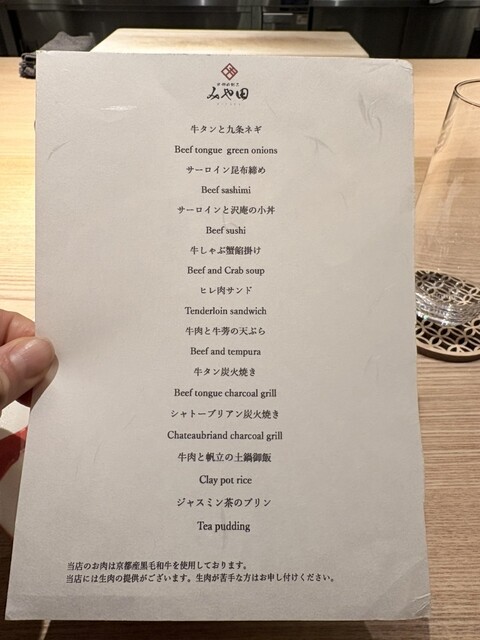 みや田
牛タンと九条ネギ
Beef tongue green onions
サーロイン昆布締め
Beef sashimi
サーロインと沢庵の小丼
Beef sushi
牛しゃぶ蟹餡掛け
Beef and Crab soup
ヒレ肉サンド
Tenderloin sandwich
牛肉と牛蒡の天ぷら
Beef and tempura
牛タン炭火焼き
Beef tongue charcoal grill
シャトーブリアン炭火焼き
Chateaubriand charcoal grill
牛肉と帆立の土鍋御飯
Clay pot rice
ジャスミン茶のプリン
Tea pudding
当店のお肉は京都産黒毛和牛を使用しております。
当店には生肉の提供がございます。生肉が苦手な方はお申し付けください。